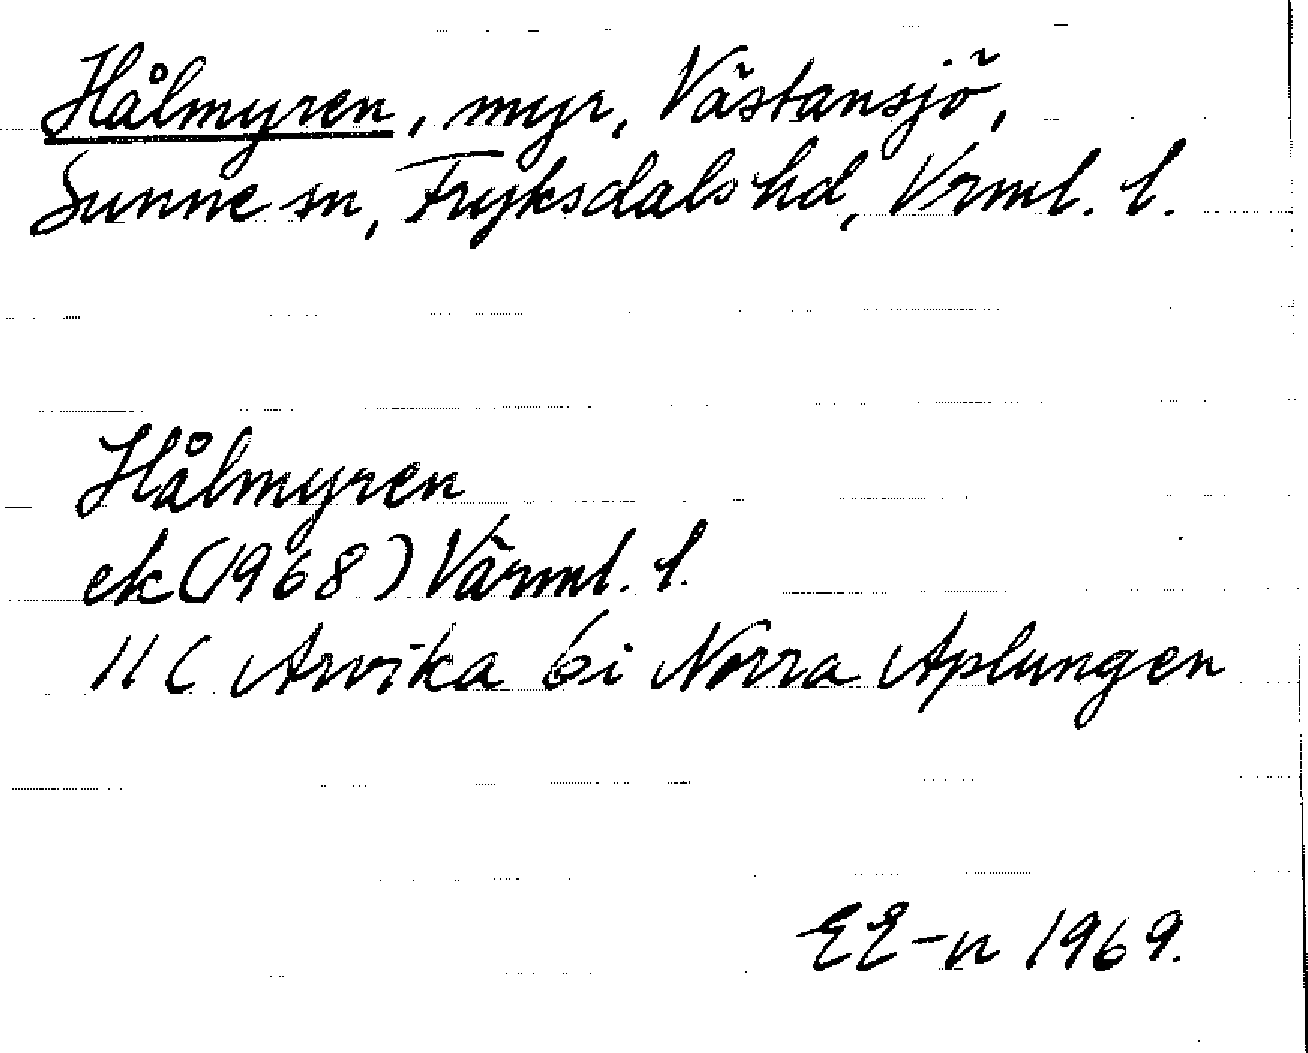 Hålmyren, myr, Västansjö,
Sunne sn, Fryksdals hd, Vrml. l.
Hålmyren
ek (1968) Värml. l.
11 C Arvika 6i Norra Aplungen
EE-n 1969.